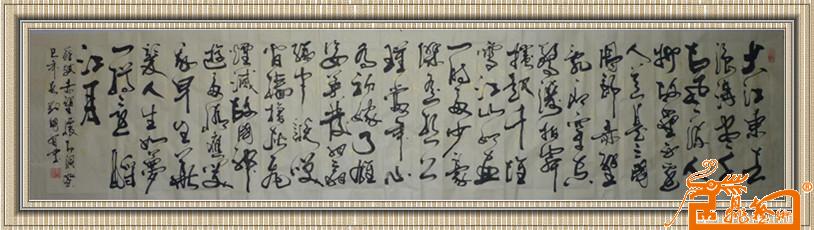 大江东去
浪淘尽千
古风流人
物故垒西边
人道是三国
周郎赤壁
乱石穿空
惊涛拍岸
捲起千堆
雪江山如画
一时多少豪
傑遥想公
瑾当年小
乔初嫁了雄
姿英发羽扇
纶巾谈笑
间樯橹灰飞
煙滅故國神
遊多情應笑
我早生华
发人生如梦
一樽还酹
江月
苏轼赤壁怀古